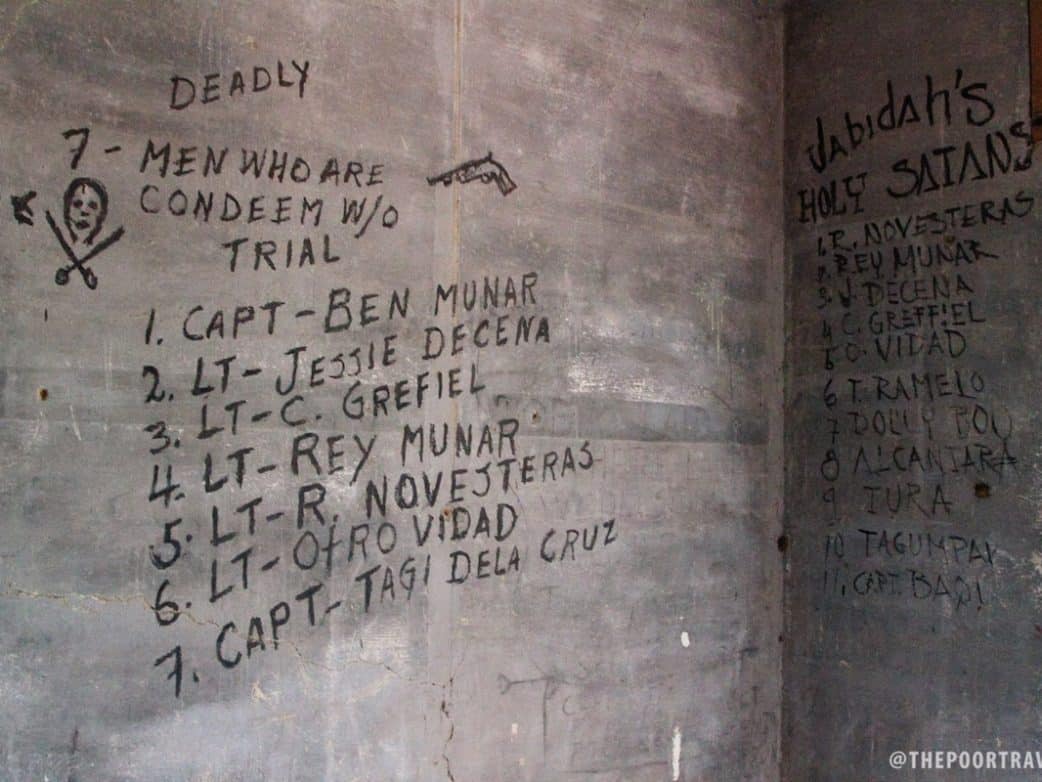 DEADLY
7 - MEN WHO ARE
CONDEEM W/O
TRIAL
1. CAPT - BEN MUNAR
2. LT - JESSIE DECENA
3. LT - C. GREFIEL
4. LT - REY MUNAR
5. LT - R. NOVESTERAS
6. LT - OTRO VIDAD
7. CAPT - TAGI DELA CRUZ
Jabidah's
HOLY SATANS
1. R. NOVESTERAS
2. REY MUNAR
3. J. DECENA
4 C. GREFFIEL
5 O. VIDAD
6 T. RAMELO
7 DOLLY
8 ALCANTARA
9 TURA
10 TAGUMPAY
11. CAPT.
@THEPOORTRAV